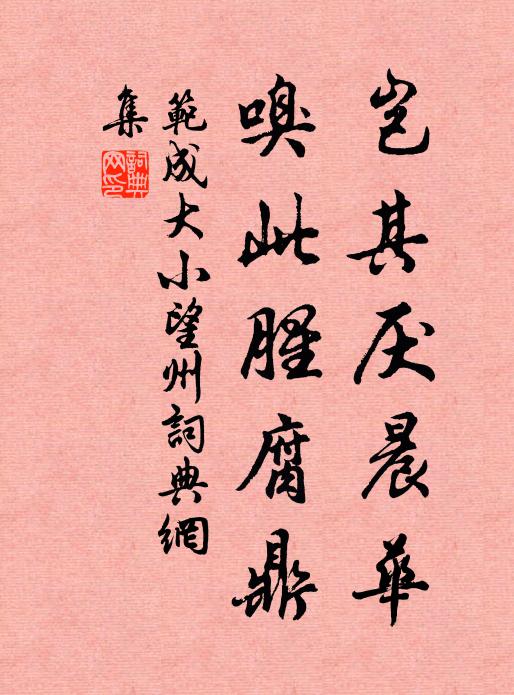 豈其厌晨華
嗅此腥腐鼎
範成大小望州詞典網
集
詞典
网印